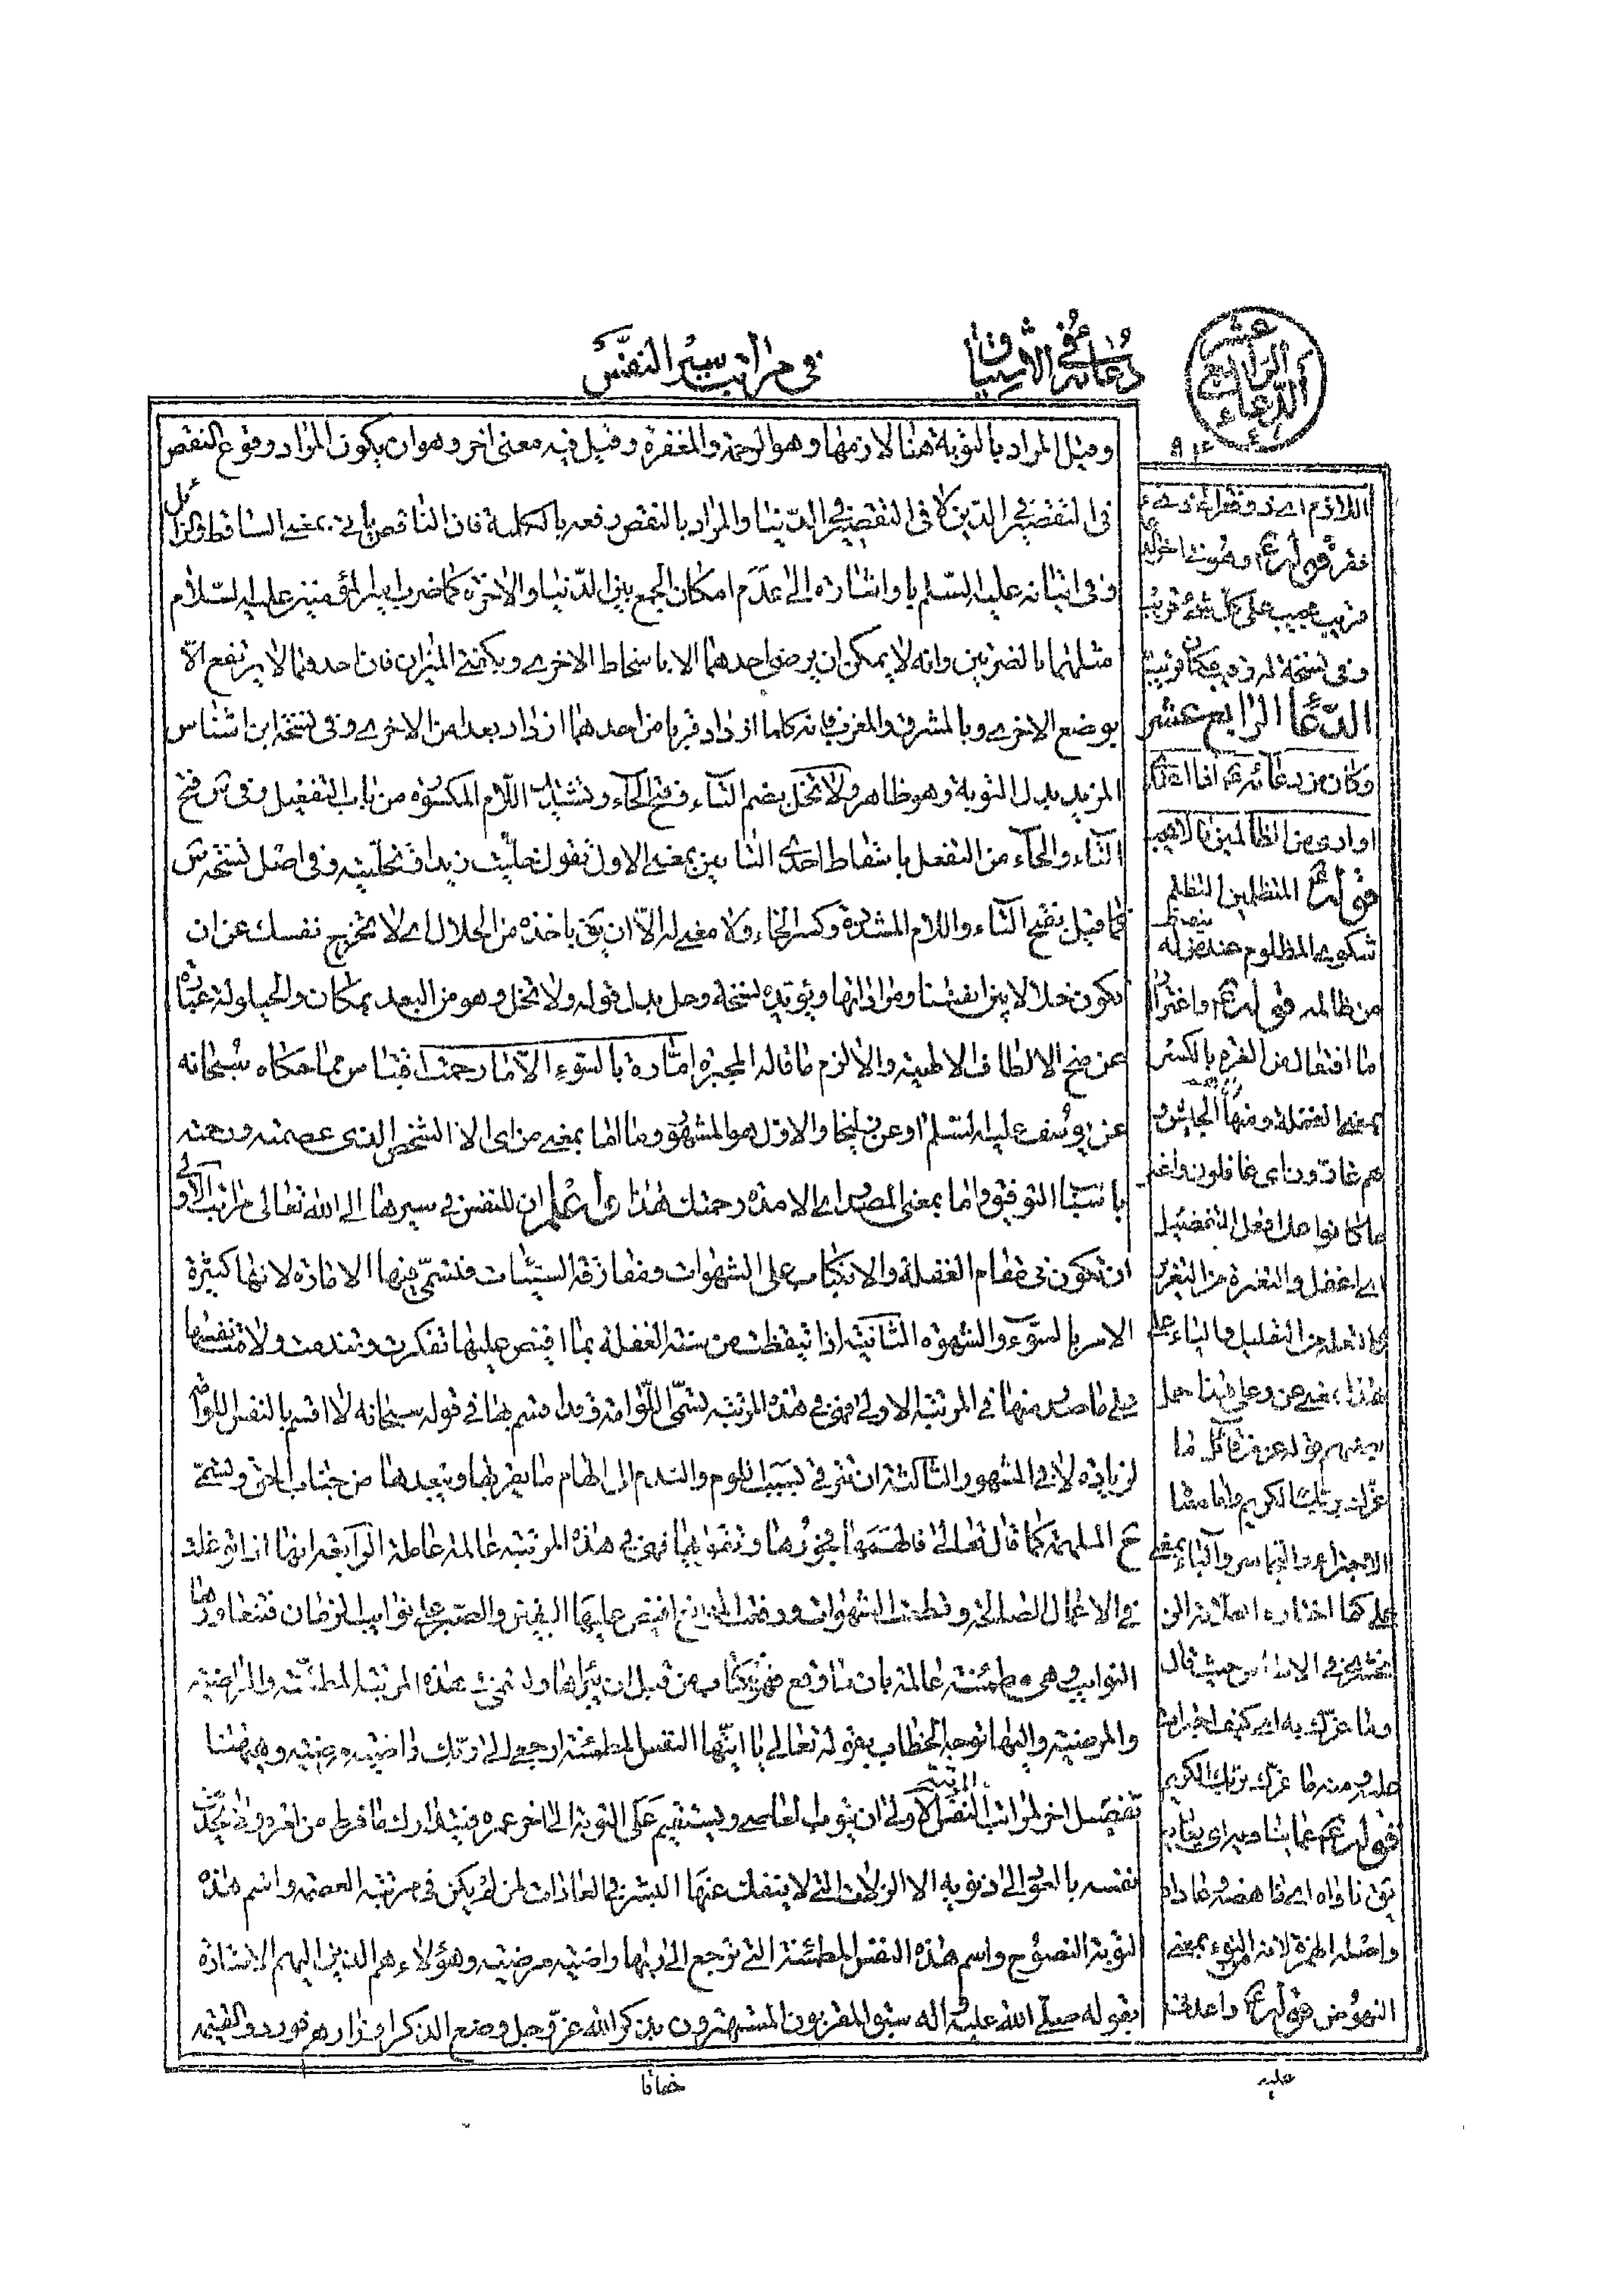 عشر الرابع الدعاء
دعائه في الاشتياق
في مراتب سير النفس
وقيل المراد بالتوبة هنا لازمها وهو الرحمة والمغفرة وقيل فيه معنى اخر وهو ان يكون المراد وقوع النقص
في النقصير الدين كما في النقصير الدنيا والمراد بالنقص رفعه بالكلية فان الناقص ياتى بمعنى الساقط وكذا قيل
وفي اتيانه عليه السلم باو اشارة الى عدم امكان الجمع بين الدنيا والاخرة كما ضرب امير المؤمنين عليه السلام
مثلهما بالضرتين وانه لا يمكن ان يرضى احدهما الا باسخاط الاخرى وبكفتى الميزان فان احدوهما لا يرتفع الا
بوضع الاخرى وبالمشرق والمغرب فانه كلما ازداد قربا من احدهما ازداد بعدا من الاخرى وفي نسخة ابن اشناس
المزيد بدل التوبة وهو ظاهر ولا تخل بضم التاء وفتح الخاء وتشديد اللام المكسورة من باب التفعيل وفي س فتح
التاء والخاء من التفعل باسقاط احدى التائين بمعنى الاول تقول خليت زيدا وتخليته وفي اصل نسخة س
كما قيل بفتح التاء واللام المشددة وكسر الخاء ولا معنى له الا ان يق باخذه من الحلال اى لا تخرج نفسك عن ان
تكون حلالا بين انفسنا ومراداتها ويؤيده نسخة وحل بدل قوله ولا تخل وهو من البعد بمكان والحيلولة عبارة
عن منح الالطاف الالهية والا لزم ما قاله المجبرة امارة بالسوء الا ما رحمت اقتباس مما حكاه سبحانه
عن يوسف عليه السلم او عن زليخا والاول هو المشهور وما اما بمعنى من اى الا الشخص الذى عصمته ورحمته
باسباب التوفيق واما بمعنى المصدر اى الا مدة رحمتك هذا واعلم ان للنفس في سيرها الى الله تعالى مراتب الاولى
ان تكون في مقام الغفلة والانكباب على الشهوات ومقارفة السيئات فتسمى فيها الامارة لانها كثيرة
الامر بالسوء والشهوة الثانية اذا تيقظت من سنة الغفلة بما افيض عليها تفكرت وتندمت ولامت نفسها
على ما صدر منها في المرتبة الاولى فهى في هذه المرتبة تسمى اللوامة وقد اقسم بها في قوله سبحانه لا اقسم بالنفس اللوامة
لزيادة لا في المشهور الثالثة ان تترقى بسبب اللوم والندم الى الهام ما يقربها ويبعدها من جناب الحق وتسمى
ح الملهمة كما قال تعالى فالهمها فجورها وتقويها فهى في هذه المرتبة عالمة عاملة الرابعة انها اذا توغلت
في الاعمال الصالحة وقطعت الشهوات ورفعت الموانع افيض عليها اليقين والصبر على نوايب الزمان فتعاورها
النوايب وهى مطمئنة عالمة بان ما وقع فهو في كتاب من قبل ان يبراها ولتسمى في هذه المرتبة المطمئنة والراضية
والمرضية واليها توجه الخطاب بقوله تعالى يا ايتها النفس المطمئنة ارجعى الى ربك راضية مرضية وهيهنا
تفصيل اخر لمراتب النفس المرتبة الاولى ان يتوب العاصى ويستقيم على التوبة الى اخر عمره فيتدارك ما فرط من امره ولا يحدث
نفسه بالعود الى ذنوبه الا الزلات التى لا ينفك عنها البشر في العادات لمن لم يكن في مرتبة العصمة واسم هذه
التوبة النصوح واسم هذه النفس المطمئنة التى ترجع الى ربها راضية مرضية وهؤلاء هم الذين اليهم الاشارة
بقوله صلى الله عليه واله سبق المفردون المستهترون بذكر الله عز وجل وضع الذكر اوزارهم فوردوا القيمة
خفافا
اللازم اى ذو فقر
فقر قوله ع
قريب مجيب على كل شئ قريب
وفي نسخة له
الدعاء الرابع عشر
وكان من دعائه ع اذا اعتدى
او راى من الظالمين ما لا يحب
قوله ع المتظلمين التظلم
شكوى المظلوم عند من له
من ظالمه قوله ع واغترارا
ما افتعال من الغرة بالكسر
بمعنى الغفلة ومنها الحديث
هم غارون اى غافلون واغتر
ما كانوا هذا افعل التفضيل
اى اغفل والتغرة من التغرير
كالتعلة من التعليل والباء على
هذا بمعنى عن
غرك بربك الكريم
على كما اختاره
في الاساس حيث قال
وما غرك به اى كيف اجترات
عليه ومنه ما غرك بربك الكريم
قوله ع عما يناويه اى يعاديه
يق ناواه اى ناهضه وعاداه
واصله الهمزة لانه من النوء بمعنى
النهوض قوله ع
عليه